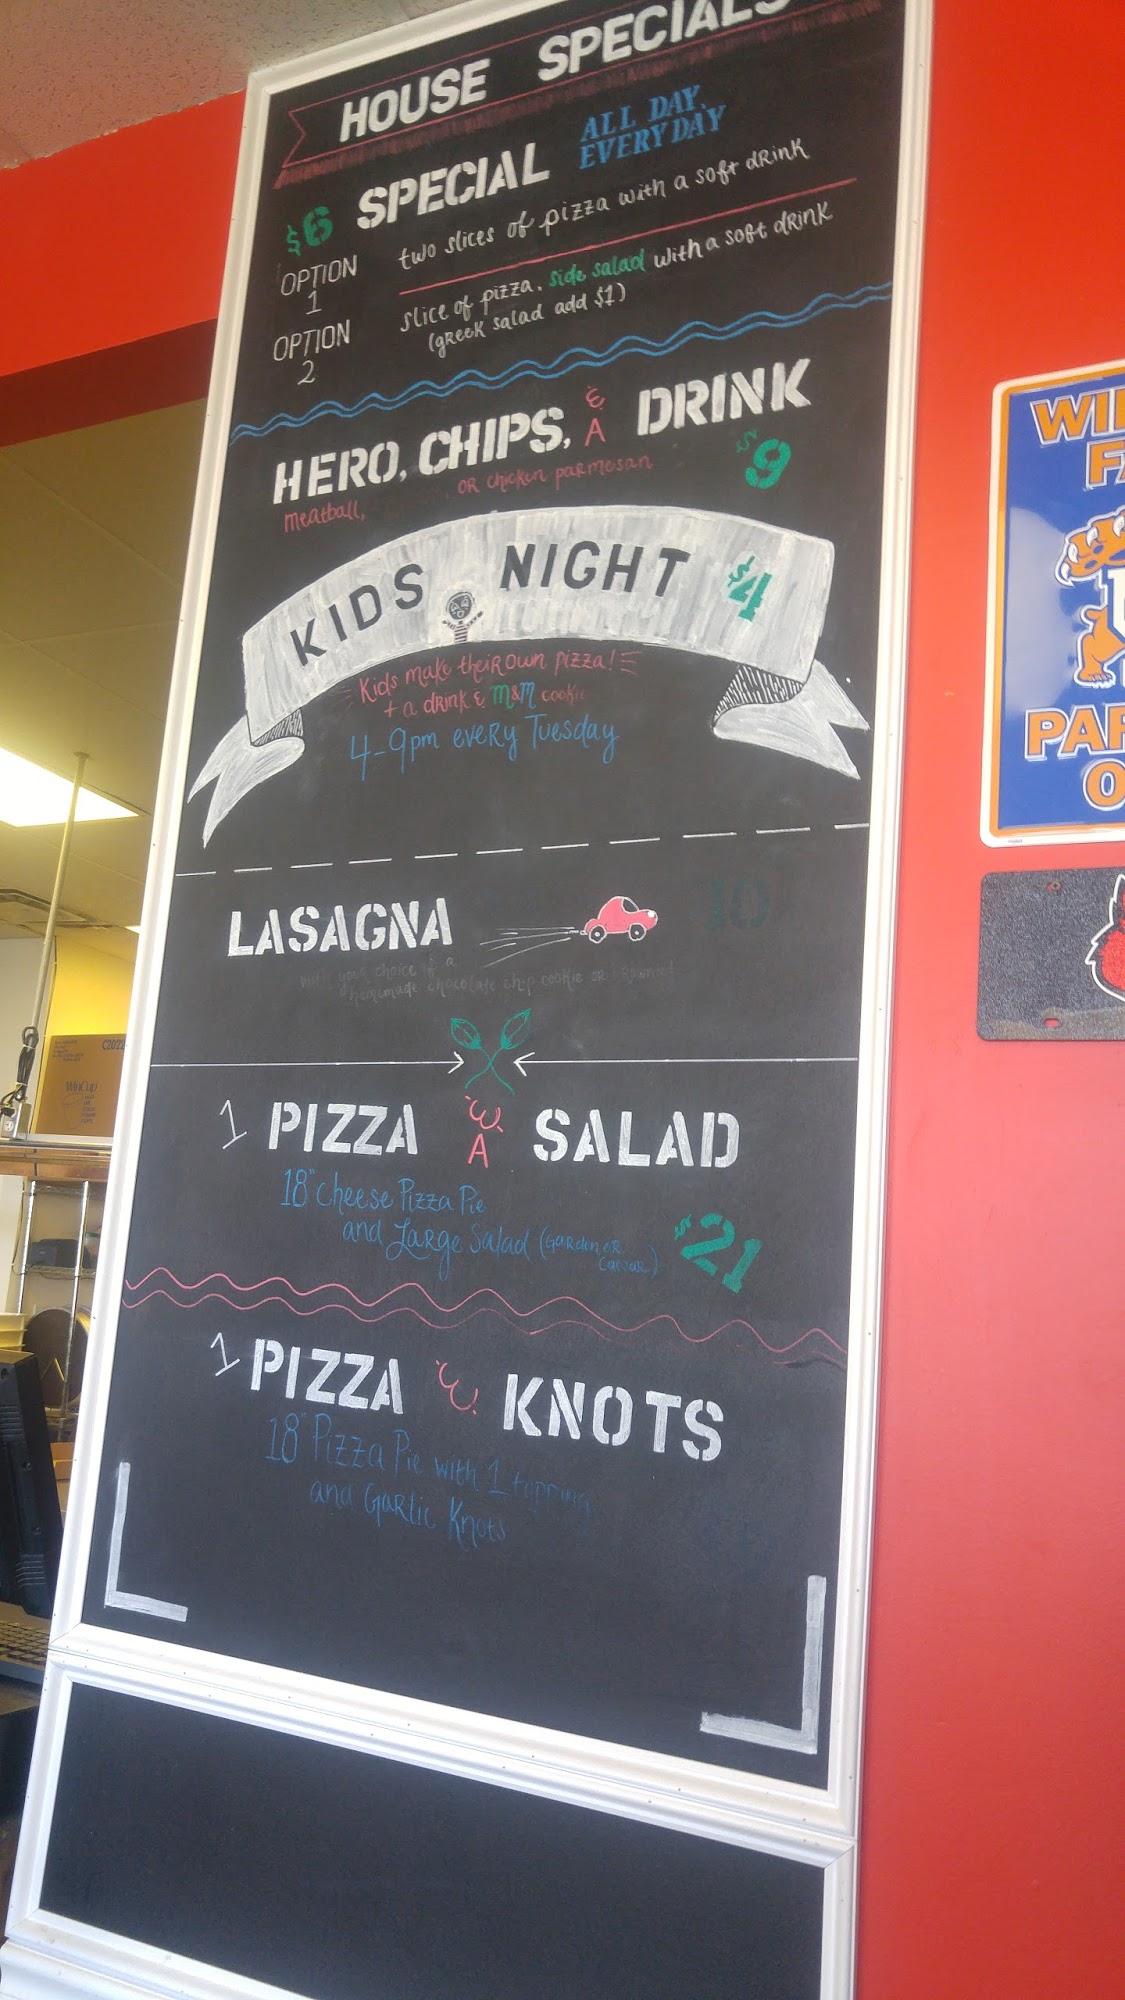 HOUSE SPECIALS
$6 SPECIAL
ALL DAY,
EVERYDAY
OPTION
1
two slices of pizza with a soft drink
OPTION
2
slice of pizza, side salad with a soft drink
(greek salad add $1)
HERO, CHIPS, & A DRINK
meatball, or chicken parmesan
$9
KIDS NIGHT $4
Kids make their own pizza!
+ a drink & M&M cookie
4-9pm every Tuesday
LASAGNA 10
with your choice of a
homemade chocolate chip cookie or brownie!
1 PIZZA & A SALAD
18" Cheese Pizza Pie
and Large Salad (Garden or
Caesar)
$21
1 PIZZA & KNOTS
18" Pizza Pie with 1 topping
and Garlic Knots
WinCup
C2022
WIL
FA
PAR
O